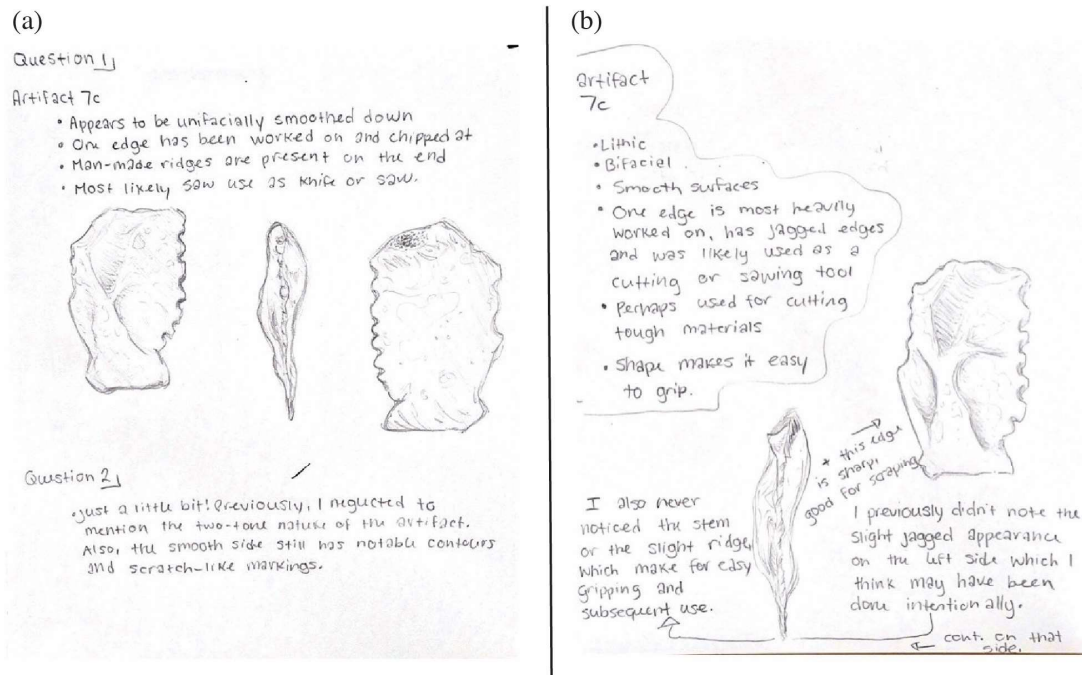 (a)
Question 1
Artifact 7c
• Appears to be unifacially smoothed down
• One edge has been worked on and chipped at
• Man-made ridges are present on the end
• Most likely saw use as knife or saw.
Question 2
• Just a little bit! Previously, I neglected to
mention the two-tone nature of the artifact.
Also, the smooth side still has notable contours
and scratch-like markings.
(b)
artifact
7c
• Lithic
• Bifacial
• Smooth surfaces
• One edge is most heavily
worked on, has jagged edges
and was likely used as a
cutting or sawing tool
• Perhaps used for cutting
tough materials
• Shape makes it easy
to grip.
* this edge
is sharp,
good for scraping
I also never
noticed the stem
or the slight ridge,
which make for easy
gripping and
subsequent use.
I previously didn't note the
slight jagged appearance
on the left side which I
think may have been
done intentionally.
cont. on that
side.